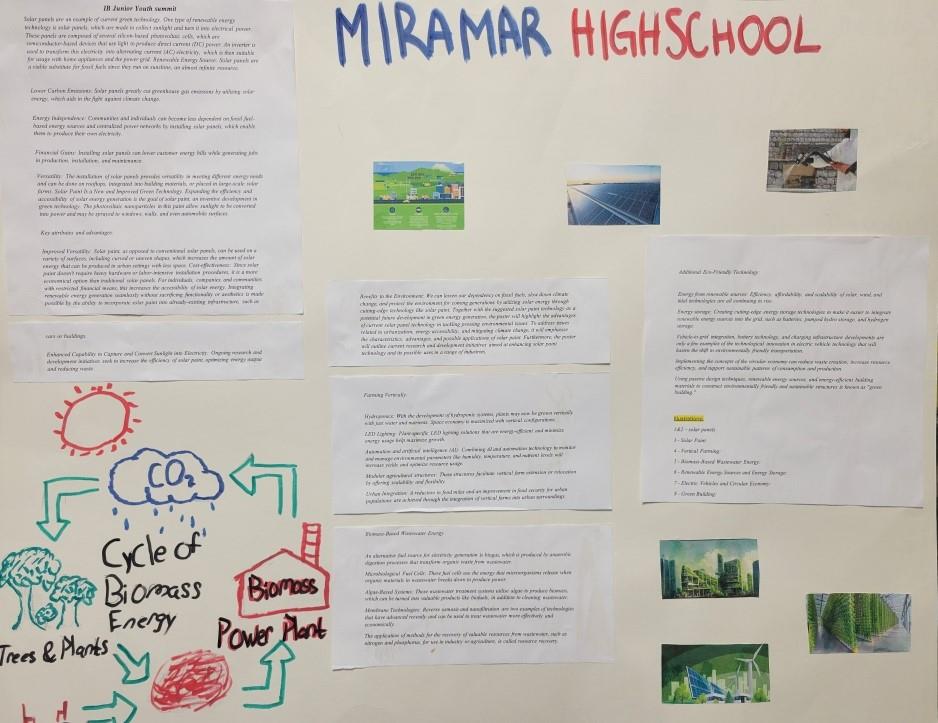 MIRAMAR HIGHSCHOOL
IB Junior Youth summit
Solar panels are an example of current green technology. One type of renewable energy
technology is solar panels, which are made to collect sunlight and turn it into electrical power.
These panels are composed of several silicon-based photovoltaic cells, which are
semiconductor-based devices that use light to produce direct current (DC) power. An inverter is
used to transform this electricity into alternating current (AC) electricity, which is then suitable
for usage with home appliances and the power grid. Renewable Energy Source: Solar panels are
a viable substitute for fossil fuels since they run on sunshine, an almost infinite resource.
Lower Carbon Emissions: Solar panels greatly cut greenhouse gas emissions by utilising solar
energy, which aids in the fight against climate change.
Energy Independence: Communities and individuals can become less dependent on fossil fuel-
based energy sources and centralized power networks by installing solar panels, which enable
them to produce their own electricity.
Financial Gains: Installing solar panels can lower customer energy bills while generating jobs
in production, installation, and maintenance.
Versatility: The installation of solar panels provides versatility in meeting different energy needs
and can be done on rooftops, integrated into building materials, or placed in large-scale solar
farms. Solar Paint Is a New and Improved Green Technology. Expanding the efficiency and
accessibility of solar energy generation is the goal of solar paint, an inventive development in
green technology. The photovoltaic nanoparticles in this paint allow sunlight to be converted
into power and may be sprayed to windows, walls, and even automobile surfaces.
Key attributes and advantages:
Improved Versatility: Solar paint, as opposed to conventional solar panels, can be used on a
variety of surfaces, including curved or uneven shapes, which increases the amount of solar
energy that can be produced in urban settings with less space. Cost-effectiveness: Since solar
paint doesn't require heavy hardware or labor-intensive installation procedures, it is a more
economical option than traditional solar panels. For individuals, companies, and communities
with restricted financial means, this increases the accessibility of solar energy. Integrating
renewable energy generation seamlessly without sacrificing functionality or aesthetics is made
possible by the ability to incorporate solar paint into already-existing infrastructure, such as
cars or buildings.
Enhanced Capability to Capture and Convert Sunlight into Electricity: Ongoing research and
development initiatives seek to increase the efficiency of solar paint, optimizing energy usage
and reducing waste
Benefits to the Environment: We can lessen our dependency on fossil fuels, slow down climate
change, and protect the environment for coming generations by utilizing solar energy through
cutting-edge technology like solar paint. Together with the suggested solar paint technology as a
potential future development in green energy generation, the poster will highlight the advantages
of current solar panel technology in tackling pressing environmental issues. To address issues
related to urbanization, energy accessibility, and mitigating climate change, it will emphasize
the characteristics, advantages, and possible applications of solar paint. Furthermore, the poster
will outline current research and development initiatives aimed at enhancing solar paint
technology and its possible uses in a range of industries.
Farming Vertically:
Hydroponics: With the development of hydroponic systems, plants may now be grown vertically
with just water and nutrients. Space economy is maximized with vertical configurations.
LED Lighting: Plant-specific LED lighting solutions that are energy-efficient and minimize
energy usage help maximize growth.
Automation and artificial intelligence (AI): Combining AI and automation technology to monitor
and manage environmental parameters like humidity, temperature, and nutrient levels will
increase yields and optimize resource usage.
Modular agricultural structures: These structures facilitate vertical farm extension or relocation
by offering scalability and flexibility.
Urban Integration: A reduction in food miles and an improvement in food security for urban
populations are achieved through the integration of vertical farms into urban surroundings.
Biomass-Based Wastewater Energy
An alternative fuel source for electricity generation is biogas, which is produced by anaerobic
digestion processes that transform organic waste from wastewater.
Microbiological Fuel Cells: These fuel cells use the energy that microorganisms release when
organic materials in wastewater breaks down to produce power.
Algae-Based Systems: These wastewater treatment systems utilize algae to produce biomass,
which can be turned into valuable products like biofuels, in addition to cleaning wastewater.
Membrane Technologies: Reverse osmosis and nanofiltration are two examples of technologies
that have advanced recently and can be used to treat wastewater more effectively and
economically.
The application of methods for the recovery of valuable resources from wastewater, such as
nitrogen and phosphorus, for use in industry or agriculture, is called resource recovery.
Additional Eco-Friendly Technology
Energy from renewable sources: Efficiency, affordability, and scalability of solar, wind, and
tidal technologies are all continuing to rise.
Energy storage: Creating cutting-edge energy storage technologies to make it easier to integrate
renewable energy sources into the grid, such as batteries, pumped hydro storage, and hydrogen
storage.
Vehicle-to-grid integration, battery technology, and charging infrastructure developments are
only a few examples of the technological innovation in electric vehicle technology that will
hasten the shift to environmentally friendly transportation.
Implementing the concepts of the circular economy can reduce waste creation, increase resource
efficiency, and support sustainable patterns of consumption and production.
Using passive design techniques, renewable energy sources, and energy-efficient building
materials to construct environmentally friendly and sustainable structures is known as "green
building."
Illustrations:
1&2 - solar panels
3 - Solar Paint
4 - Vertical Farming:
5 - Biomass-Based Wastewater Energy:
6 - Renewable Energy Sources and Energy Storage:
7 - Electric Vehicles and Circular Economy:
8 - Green Building:
CO2
Cycle of
Biomass
Energy
Trees & Plants
Biomass
Power Plant